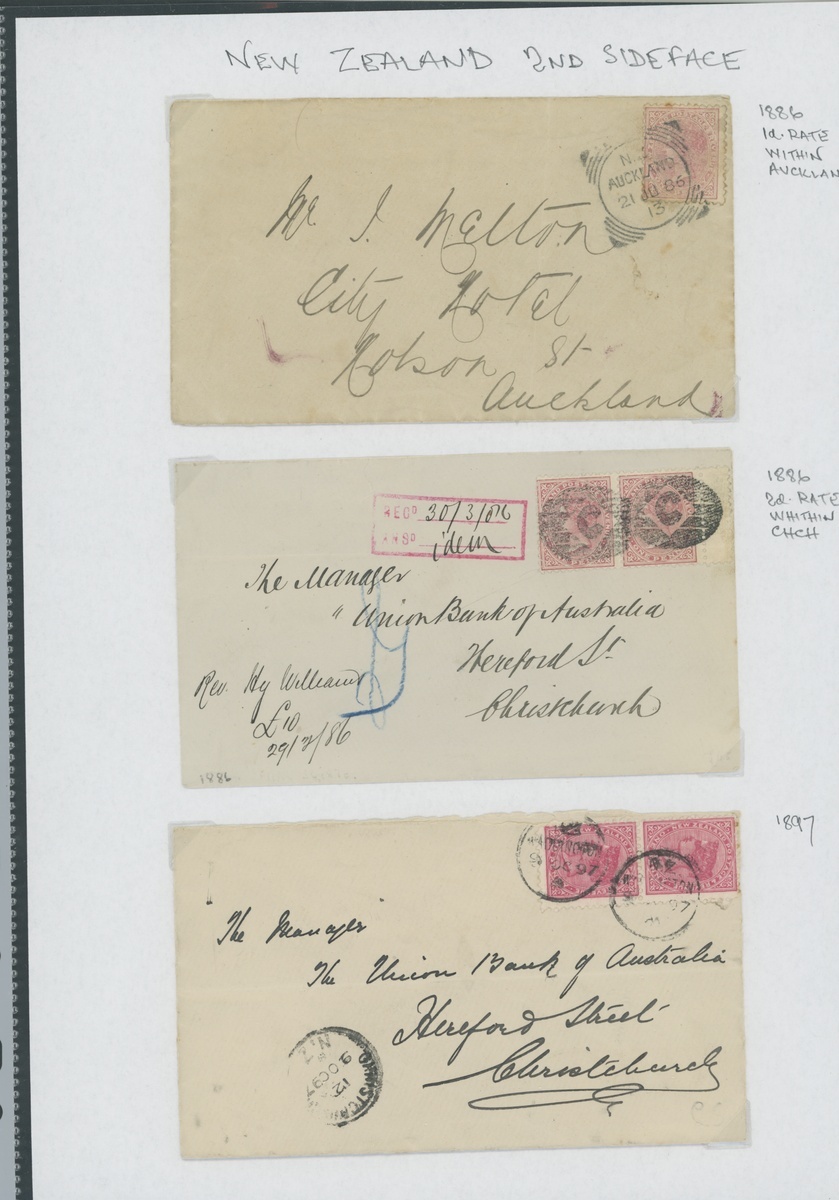 NEW ZEALAND 2ND SIDEFACE
1886
1d. RATE
WITHIN
AUCKLAN
N.Z
AUCKLAND
21 JU 86
13
Mr. J. Melton
City Hotel
Hobson St
Auckland
1886
2d. RATE
WHITHIN
CHCH
RECD 30/3/86
ANSD idem
The Manager
" Union Bank of Australia
Hereford St
Christchurch
Rev. Hy Williams
£10
29/3/86
1886
1897
NEW ZEALAND
97
97
"The Manager"
The Union Bank of Australia
Hereford Street
Christchurch
CHRISTCHURCH
N.Z
9 OC 97